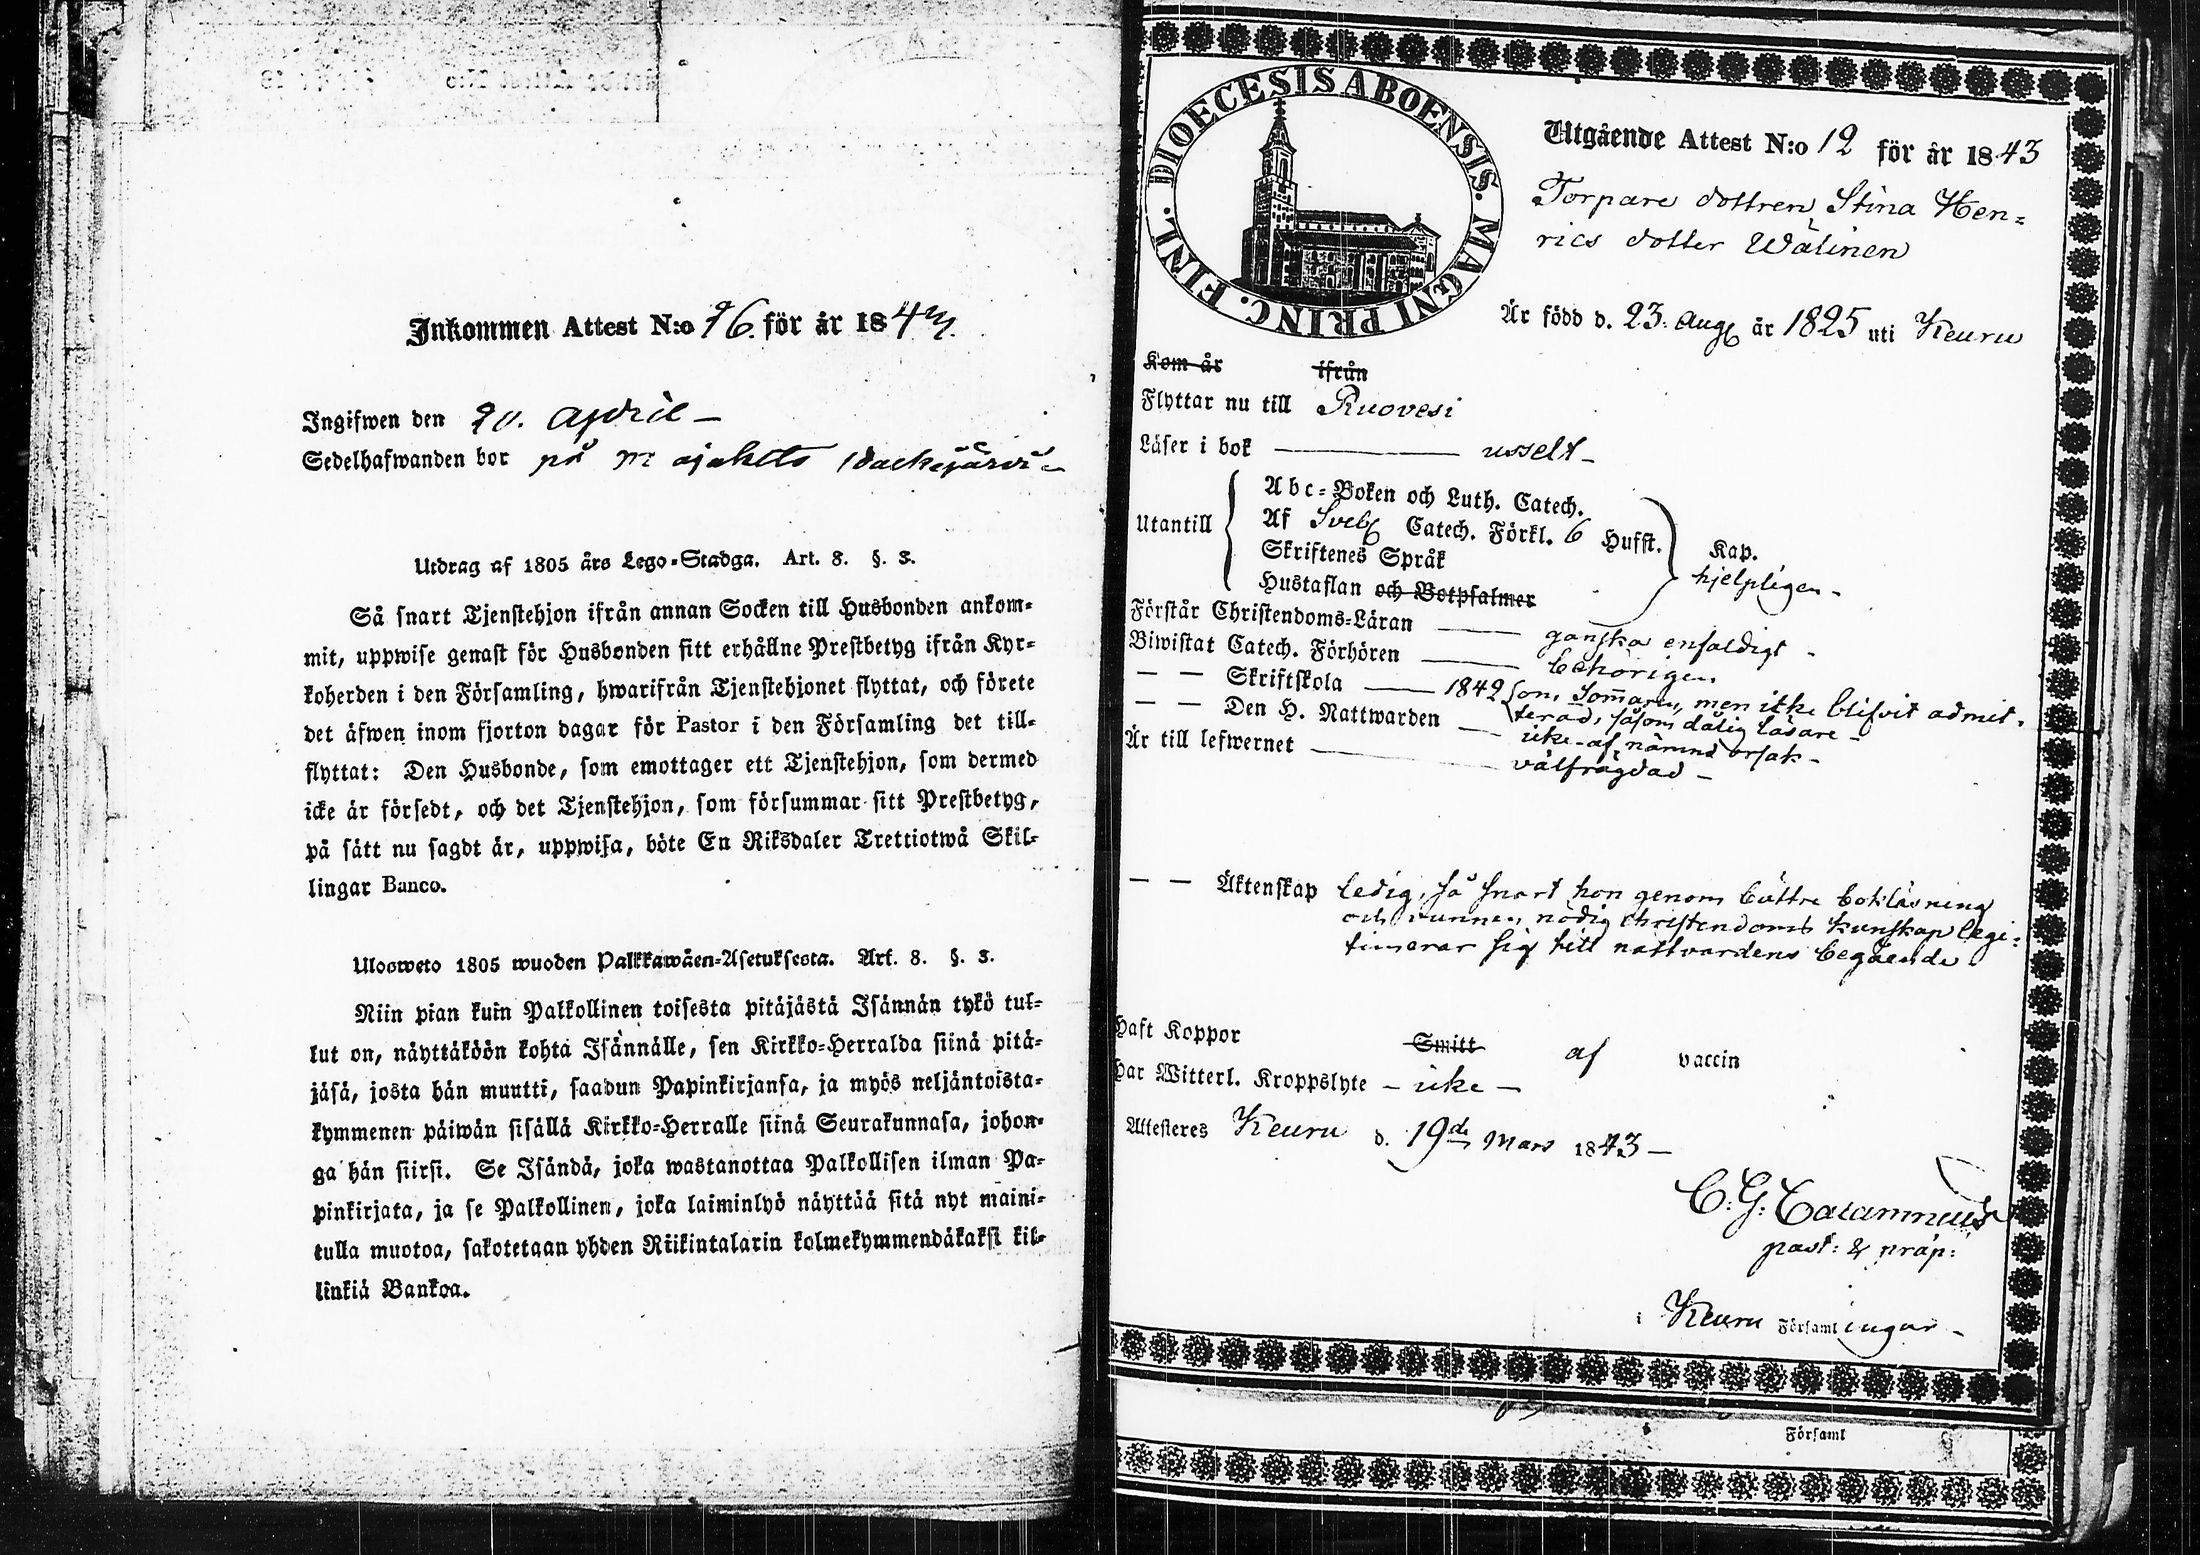 Inkommen Attest N:o 96. för år 1843.
Ingifwen den 20. April –
Sedelhafwanden bor på
Utdrag af 1805 års Lego-Stadga. Art. 8. §. 3.
Så snart Tjenstehjon ifrån annan Socken till Husbonden ankom-
mit, uppwise genast för Husbonden sitt erhållne Prestbetyg ifrån Kyr-
koherden i den Församling, hwarifrån Tjenstehjonet flyttat, och förete
det äfwen inom fjorton dagar för Pastor i den Församling det till-
flyttat: Den Husbonde, som emottager ett Tjenstehjon, som dermed
icke är försedt, och det Tjenstehjon, som försummar sitt Prestbetyg,
på sätt nu sagdt är, uppwisa, böte En Riksdaler Trettiotwå Skil-
lingar Banco.
Ulosweto 1805 wuoden Palkkawäen-Asetuksesta. Art. 8. §. 3.
Niin pian kuin Palkollinen toisesta pitäjästä Isännän tykö tul-
lut on, näyttäköön kohta Isännälle, sen Kirkko-Herralda siinä pitä-
jäsä, josta hän muutti, saadun Papinkirjansa, ja myös neljäntoista-
kymmenen päiwän sisällä Kirkko-Herralle siinä Seurakunnasa, johon-
ga hän siirsi. Se Isändä, joka wastanottaa Palkollisen ilman Pa-
pinkirjata, ja se Palkollinen, joka laiminlyö näyttää sitä nyt maini-
tulla muotoa, sakotetaan yhden Riikintalarin kolmekymmendäkaksi kil-
linkiä Bankoa.
DIOECESIS ABOENSIS. MAGNI PRINC. FINL.
Utgående Attest N:o 12 för år 1843
Torpare dottren Stina Hen=
rics dotter Wälinen
Är född d. 23. Aug. år 1825 uti Keuru
Kom år ifrån
Flyttar nu till Ruovesi
Läser i bok usselt –
Utantill
Abc-Boken och Luth. Catech.
Af Sveb. Catech. Förkl. 6 Hufst.
Skriftenes Språk
Hustaflan och Botpsalmer
Kap.
hjelpligen –
Förstår Christendoms-Läran ganska enfaldigt –
Biwistat Catech. Förhören behörigen
— — Skriftskola 1842 om Som̄aren, men icke blifvit admit-
terad, såsom dålig läsare –
— — Den H. Nattwarden icke af nämnd orsak –
Är till lefwernet välfrägdad –
— — Äktenskap ledig, så snart hon genom bättre bokläsning
och vunnen nödig christendoms kunskap legi=
timerar sig till nattvardens begående.
Haft Koppor Smitt af vaccin
Har Witterl. Kroppslyte – icke –
Attesteres Keuru d. 19de Mars 1843 –
C. G. Calamnius
past: & präp:
i Keuru Församlingar –
Församl